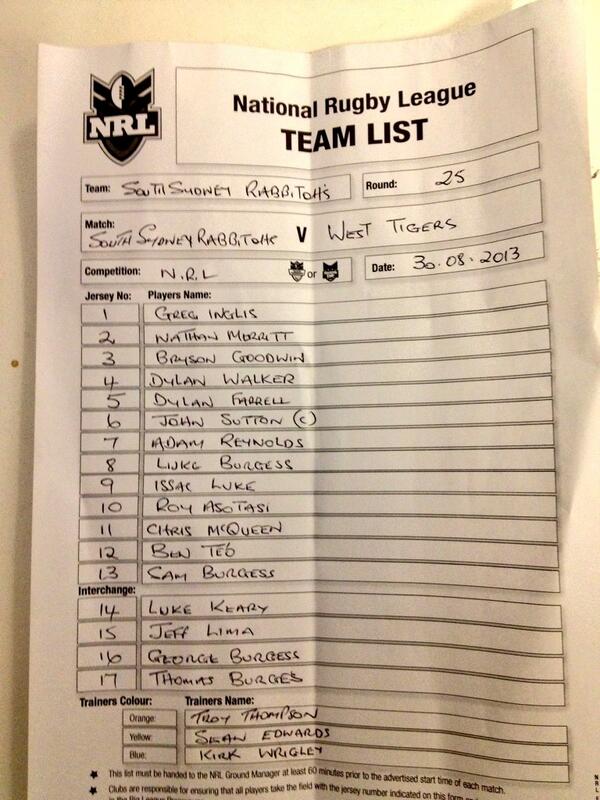 NRL
National Rugby League
TEAM LIST
Team: SOUTH SYDNEY RABBITOHS Round: 25
Match: SOUTH SYDNEY RABBITOHS V WEST TIGERS
Competition: N.R.L or Date: 30.08.2013
Jersey No: Players Name:
1 GREG INGLIS
2 NATHAN MERRITT
3 BRYSON GOODWIN
4 DYLAN WALKER
5 DYLAN FARRELL
6 JOHN SUTTON (C)
7 ADAM REYNOLDS
8 LUKE BURGESS
9 ISSAC LUKE
10 ROY ASOTASI
11 CHRIS MCQUEEN
12 BEN TEO
13 SAM BURGESS
Interchange:
14 LUKE KEARY
15 JEFF LIMA
16 GEORGE BURGESS
17 THOMAS BURGES
Trainers Colour: Trainers Name:
Orange: TROY THOMPSON
Yellow: SEAN EDWARDS
Blue: KIRK WRIGLEY
★ This list must be handed to the NRL Ground Manager at least 60 minutes prior to the advertised start time of each match.
★ Clubs are responsible for ensuring that all players take the field with the jersey number indicated on this form